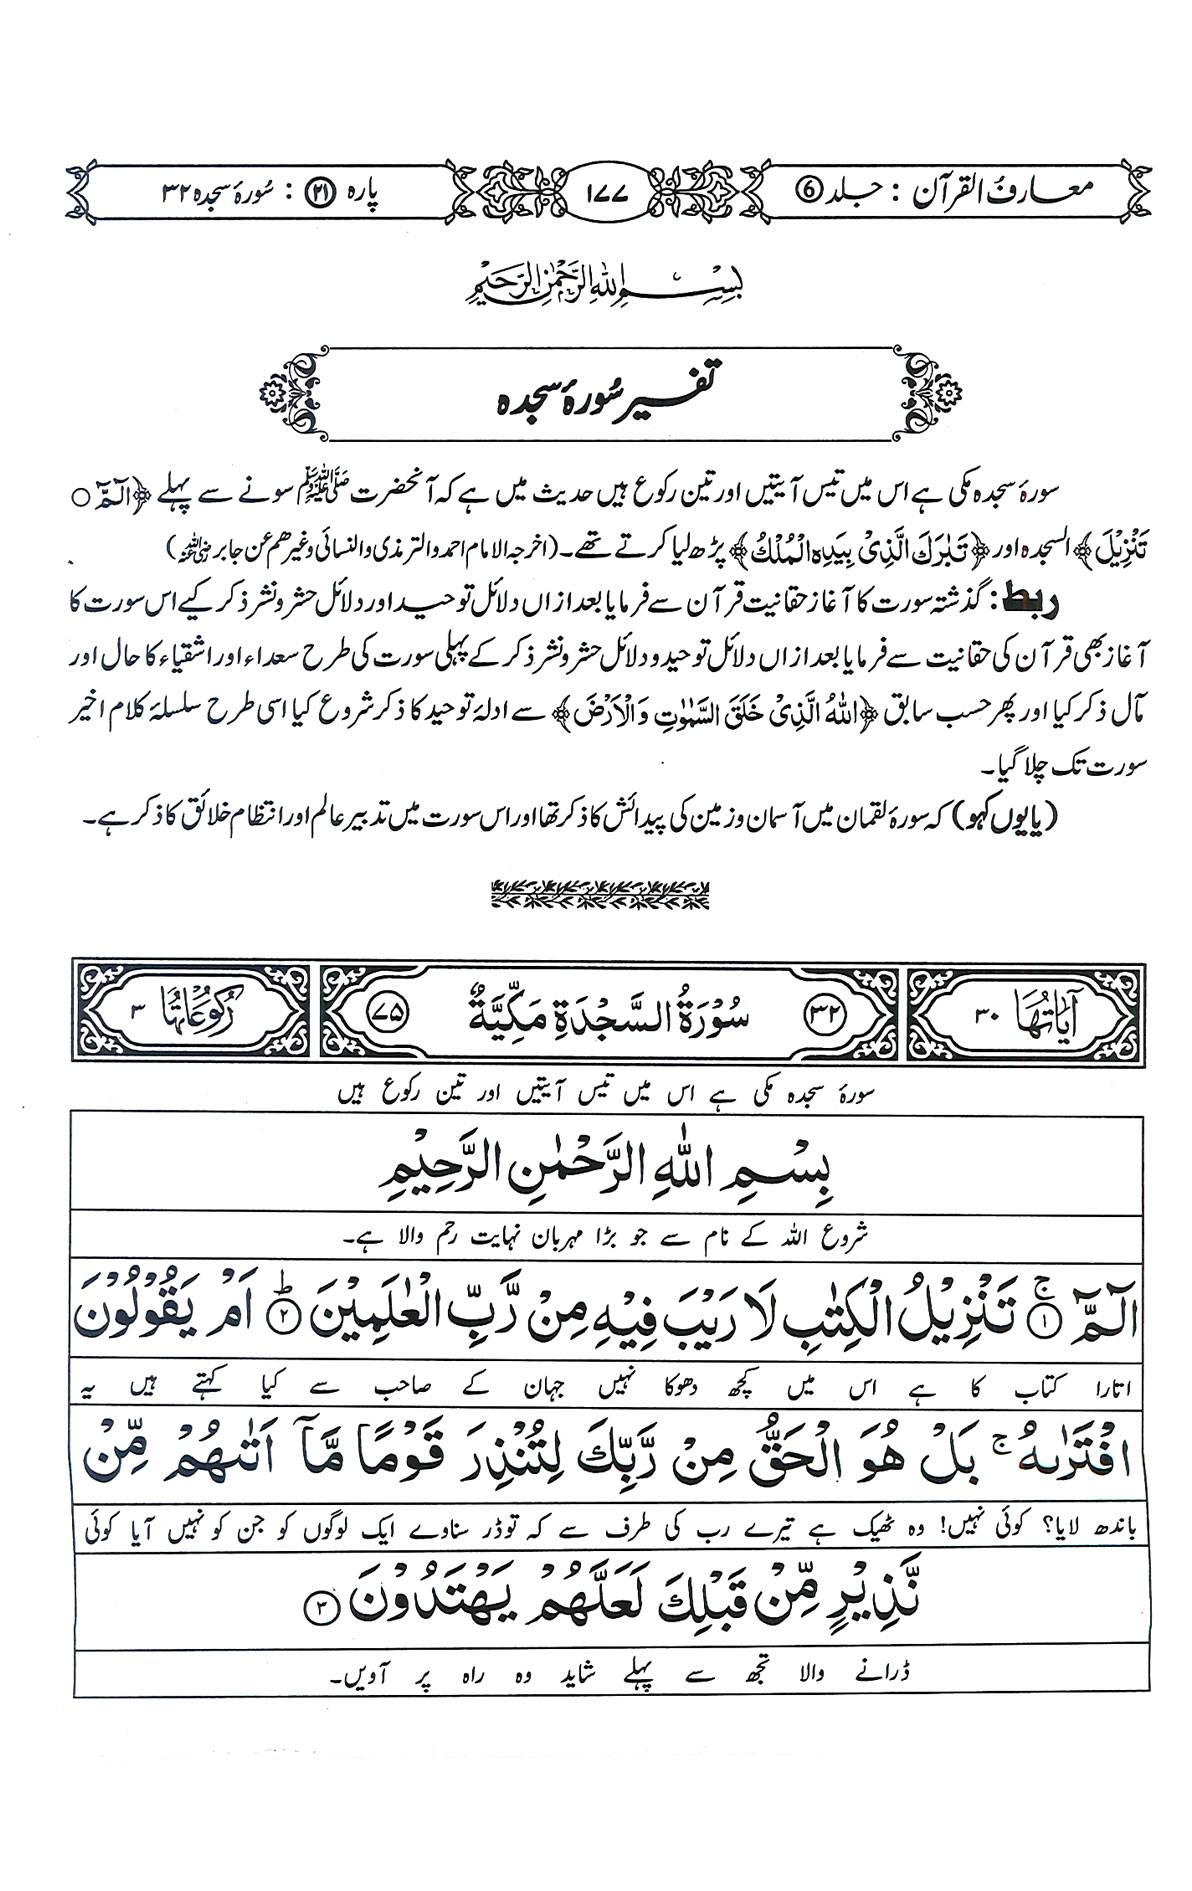 معارف القرآن : جلد 6
۱۷۷
پارہ ۲۱ : سُورۂ سجدہ ۳۲
بِسْمِ اللهِ الرَّحْمٰنِ الرَّحِيْمِ
تفسیر سُورۂ سجدہ
سورۂ سجدہ مکی ہے اس میں تیس آیتیں اور تین رکوع ہیں حدیث میں ہے کہ آنحضرت ﷺ سونے سے پہلے ﴿الٓمّٓ ○
تَنْزِيْلَ﴾ السجدہ اور ﴿تَبٰرَكَ الَّذِيْ بِيَدِهِ الْمُلْكُ﴾ پڑھ لیا کرتے تھے۔ (اخرجہ الامام احمد والترمذی والنسائی وغیرھم عن جابر رضی اللہ عنہ)
ربط: گذشتہ سورت کا آغاز حقانیت قرآن سے فرمایا بعد ازاں دلائل توحید اور دلائل حشر و نشر ذکر کیے اس سورت کا
آغاز بھی قرآن کی حقانیت سے فرمایا بعد ازاں دلائل توحید و دلائل حشر و نشر ذکر کے پہلی سورت کی طرح سعداء اور اشقیاء کا حال اور
مآل ذکر کیا اور پھر حسب سابق ﴿اَللّٰهُ الَّذِيْ خَلَقَ السَّمٰوٰتِ وَالْاَرْضَ﴾ سے ادلۂ توحید کا ذکر شروع کیا اسی طرح سلسلۂ کلام اخیر
سورت تک چلا گیا۔
(یا یوں کہو) کہ سورۂ لقمان میں آسمان و زمین کی پیدائش کا ذکر تھا اور اس سورت میں تدبیر عالم اور انتظام خلائق کا ذکر ہے۔
اٰيَاتُهَا ۳۰
۳۲ سُوْرَةُ السَّجْدَةِ مَكِّيَّةٌ ۷۵
رُكُوْعَاتُهَا ۳
سورۂ سجدہ مکی ہے اس میں تیس آیتیں اور تین رکوع ہیں
بِسْمِ اللهِ الرَّحْمٰنِ الرَّحِيْمِ
شروع اللہ کے نام سے جو بڑا مہربان نہایت رحم والا ہے۔
الٓمّٓ ۚ ۱ تَنْزِيْلُ الْكِتٰبِ لَا رَيْبَ فِيْهِ مِنْ رَّبِّ الْعٰلَمِيْنَ ؕ ۲ اَمْ يَقُوْلُوْنَ
اتارا کتاب کا ہے اس میں کچھ دھوکا نہیں جہان کے صاحب سے کیا کہتے ہیں یہ
افْتَرٰىهُ ۚ بَلْ هُوَ الْحَقُّ مِنْ رَّبِّكَ لِتُنْذِرَ قَوْمًا مَّآ اَتٰىهُمْ مِّنْ
باندھ لایا؟ کوئی نہیں! وہ ٹھیک ہے تیرے رب کی طرف سے کہ تو ڈر سناوے ایک لوگوں کو جن کو نہیں آیا کوئی
نَّذِيْرٍ مِّنْ قَبْلِكَ لَعَلَّهُمْ يَهْتَدُوْنَ ۳
ڈرانے والا تجھ سے پہلے شاید وہ راہ پر آویں۔